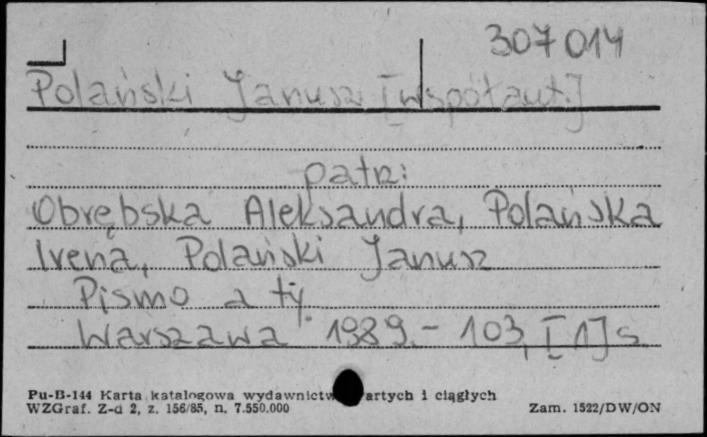 307 014
Polański Janusz [współaut.]
patrz:
Obrębska Aleksandra, Polańska
Irena, Polański Janusz
Pismo a ty.
Warszawa 1989.- 103, [1] s.
Pu-B-144 Karta katalogowa wydawnictw artych i ciągłych
WZGraf. Z-d 2, z. 156/85, n. 7.550.000 Zam. 1522/DW/ON